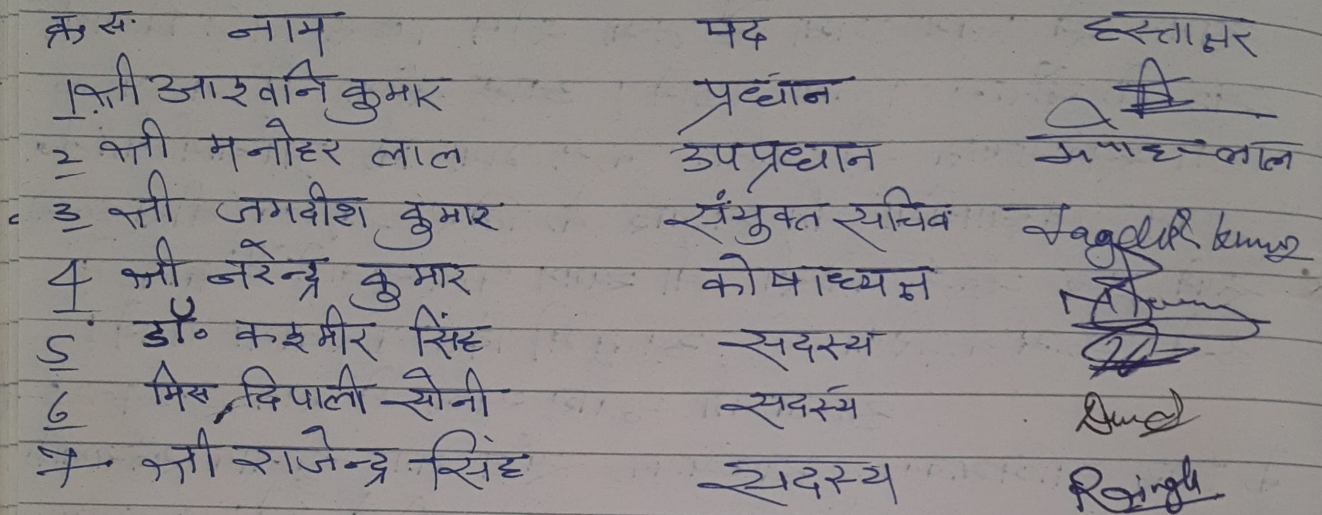 क्र.सं. नाम पद हस्ताक्षर
1 श्री आश्वनि कुमार प्रधान
2 श्री मनोहर लाल उपप्रधान लाल
3 श्री जगदीश कुमार संयुक्त सचिव Jagdish kumar
4 श्री नरेन्द्र कुमार कोषाध्यक्ष
5 डॉ. कश्मीर सिंह सदस्य
6 मिस दिपाली सोनी सदस्य
7 श्री राजेन्द्र सिंह सदस्य RSingh